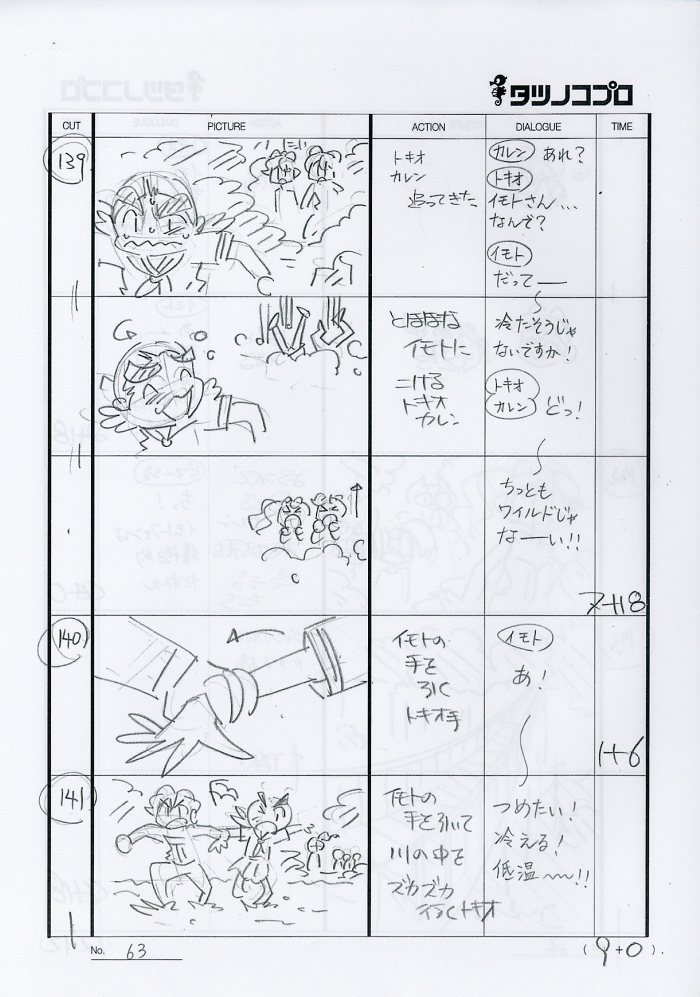 タツノコプロ
CUT PICTURE ACTION DIALOGUE TIME
139
トキオ
カレン
追ってきた
カレン あれ?
トキオ
イモトさん...
なんで?
イモト
だってー
とほほな
イモトに
こける
トキオ
カレン
冷たそうじゃ
ないですか!
トキオ
カレン どっ!
ちっとも
ワイルドじゃ
なーい!!
7+18
140
イモトの
手を
引く
トキオ手
イモト
あ!
1+6
141
イモトの
手を引いて
川の中を
ズカズカ
行くトキオ
つめたい!
冷える!
低温〜〜!!
No. 63
(9+0).